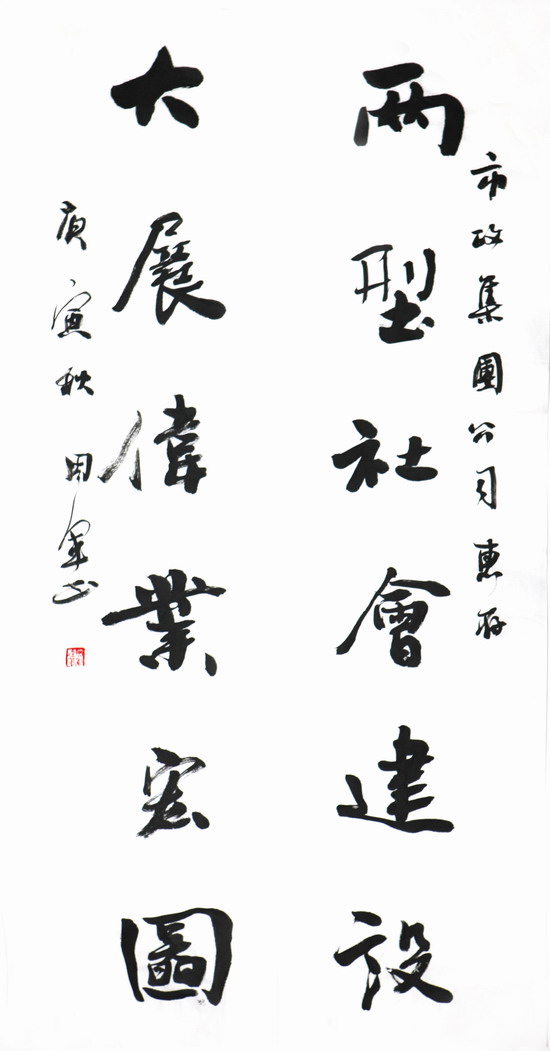 市政集團公司惠存
两型社會建設
大展偉業宏圖
庚寅秋